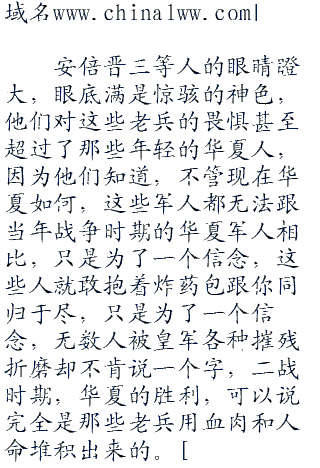 域名www.china1ww.com|
安倍晋三等人的眼睛瞪
大，眼底满是惊骇的神色，
他们对这些老兵的畏惧甚至
超过了那些年轻的华夏人，
因为他们知道，不管现在华
夏如何，这些军人都无法跟
当年战争时期的华夏军人相
比，只是为了一个信念，这
些人就敢抱着炸药包跟你同
归于尽，只是为了一个信
念，无数人被皇军各种摧残
折磨却不肯说一个字，二战
时期，华夏的胜利，可以说
完全是那些老兵用血肉和人
命堆积出来的。[